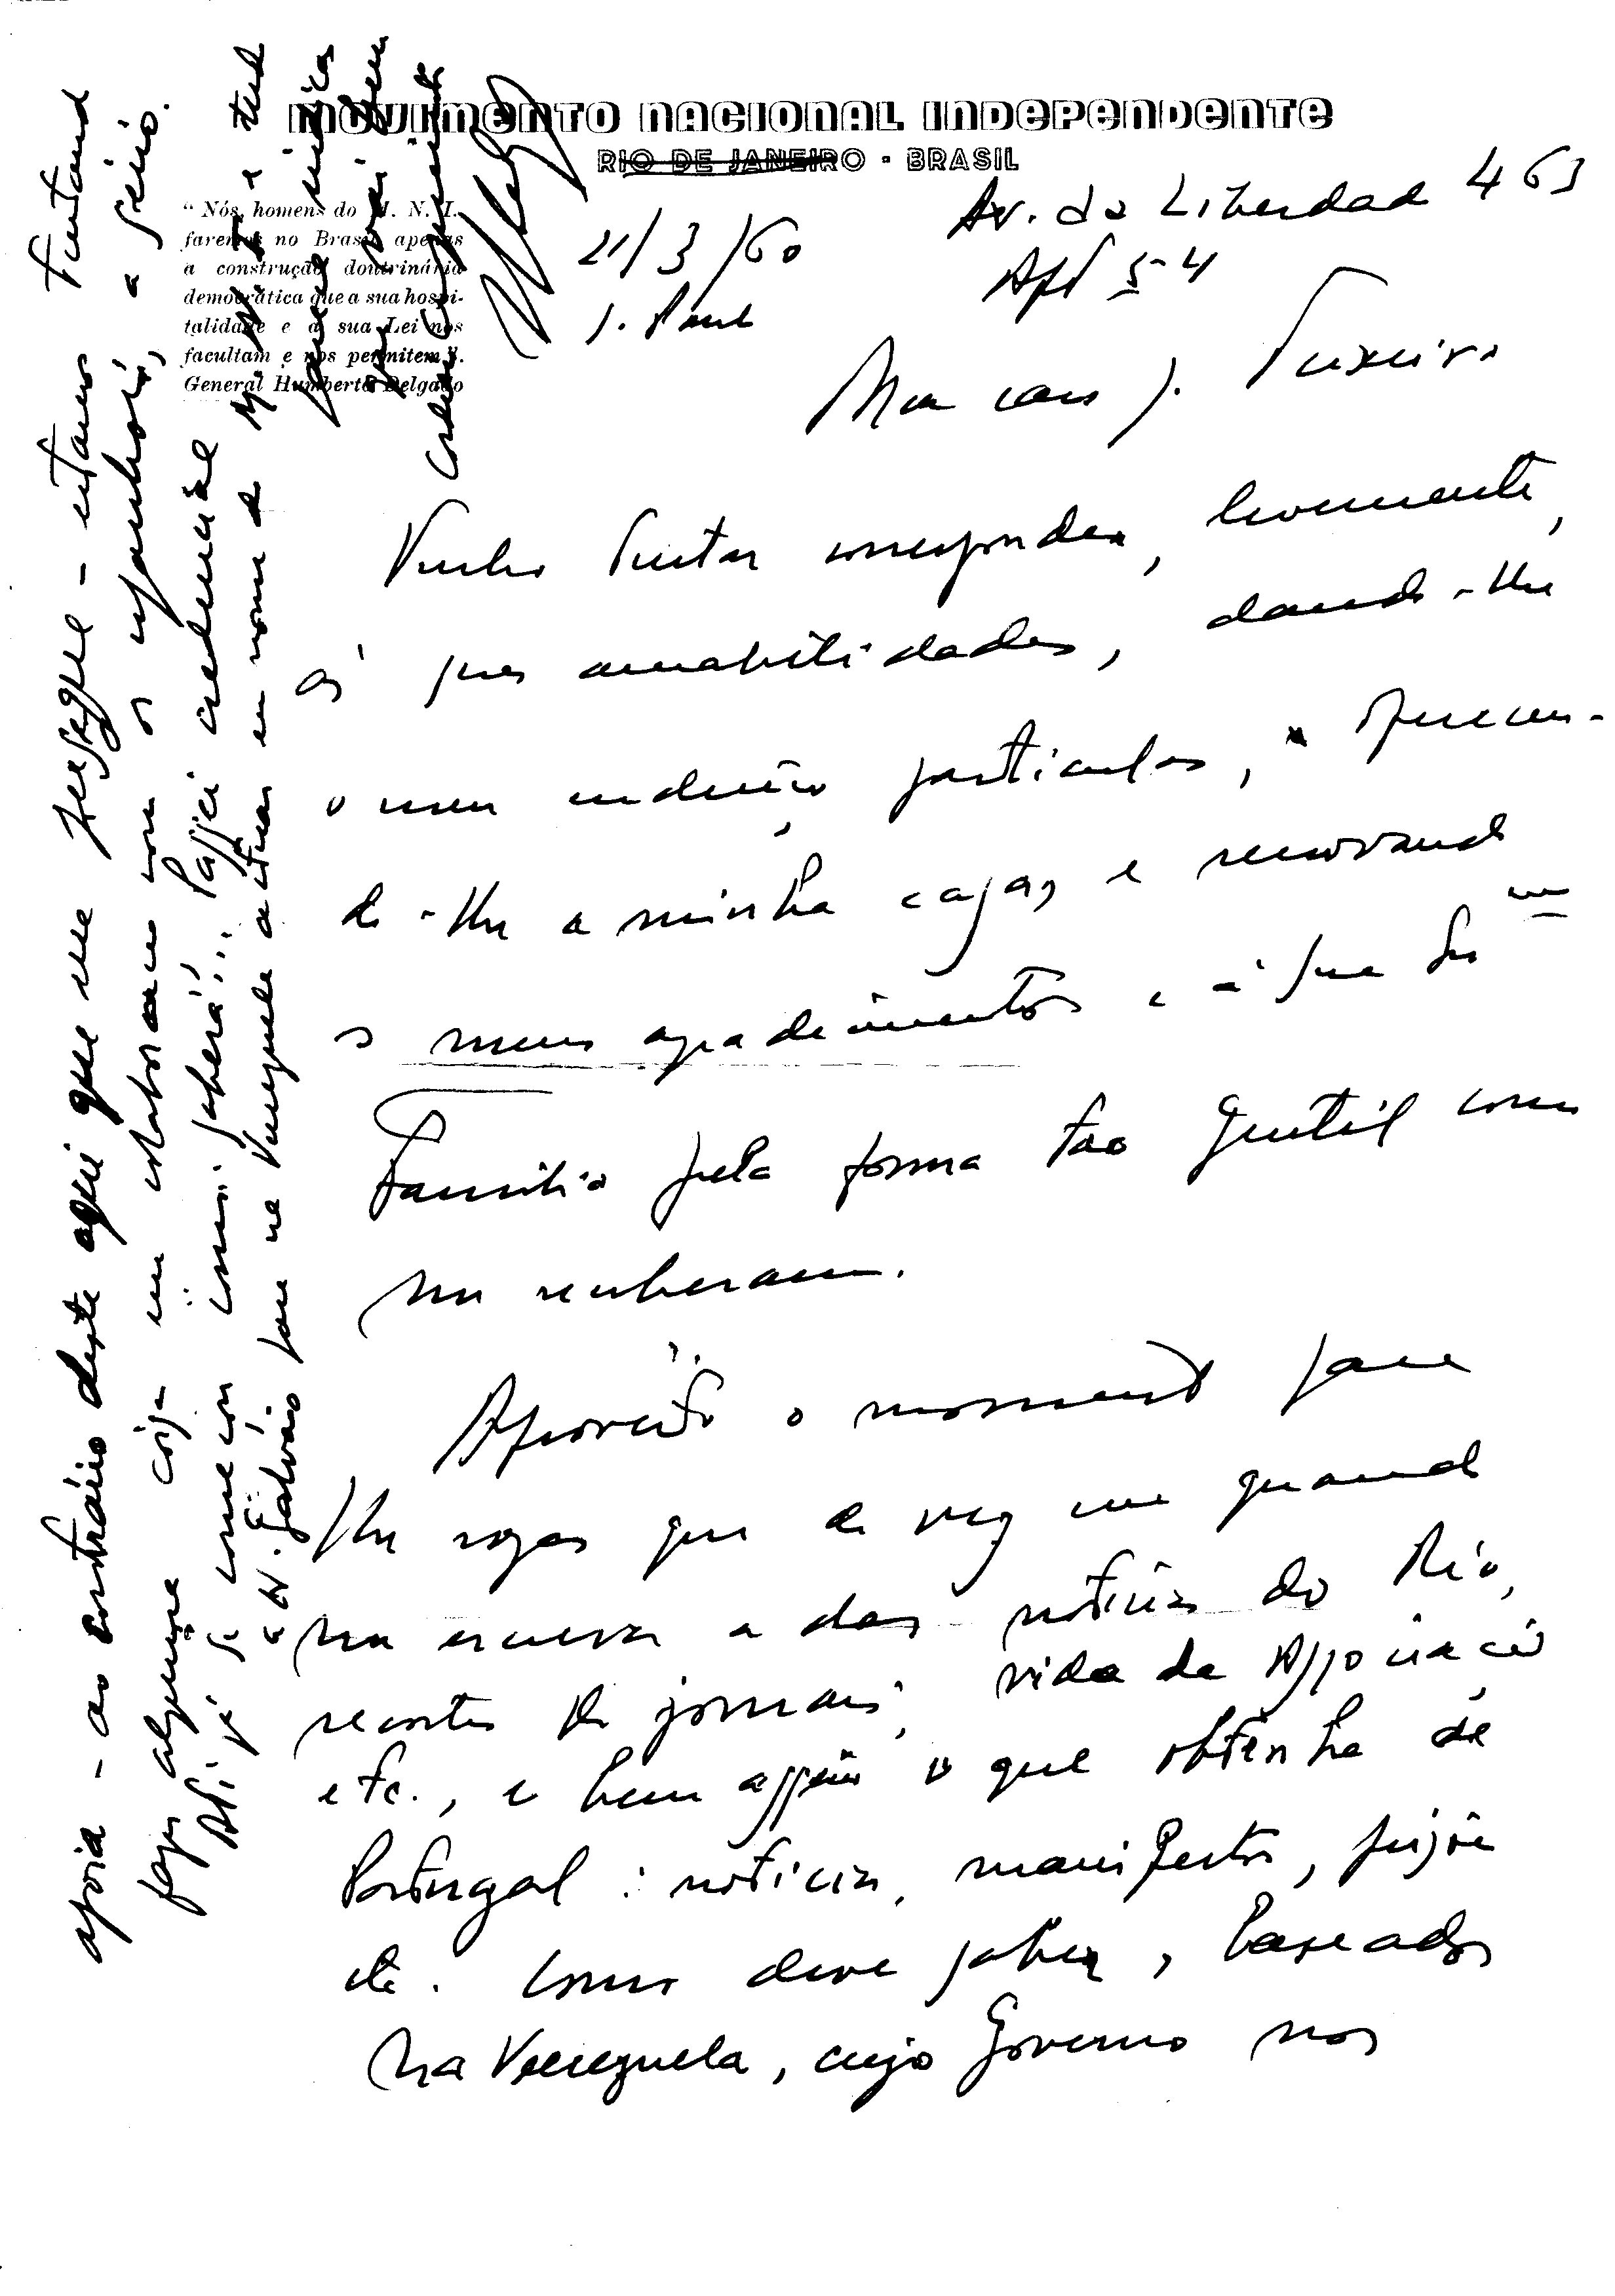 MOVIMENTO NACIONAL INDEPENDENTE
RIO DE JANEIRO - BRASIL
"Nós, homens do M. N. I.
faremos no Brasil apenas
a construção doutrinária
democrática que a sua hospi-
talidade e a sua Lei nos
facultam e nos permitem".
General Humberto Delgado
Av. da Liberdade 463
Apt 54
21/3/60
S. Paulo
Meu caro J. Teixeira
Venho tentar corresponder, levemente,
às suas amabilidades, dando-lhe
o meu endereço particular, oferecen-
do-lhe a minha casa, e renovando
os meus agradecimentos e à sua
Família pela forma tão gentil como
me receberam.
Aproveito o momento para
lhe rogar que de vez em quando
me escreva a dar notícias do Rio,
recortes de jornais, vida da Associação
etc., e bem assim o que obtenha de
Portugal: notícias, manifestos,
etc. Como deve saber,
na Venezuela, cujo Governo nos
apoia - ao contrário deste aqui que me persegue - estamos tentando
fazer alguma coisa em colaboração com os espanhóis, a sério.
Ali já se começou como saberá... Passei credencial
a H. Galvão para na Venezuela actuar em nome do M. N. I. e tudo